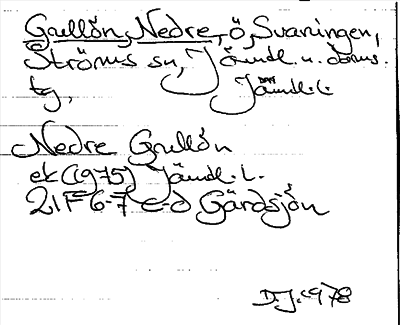 Grullön, Nedre, ö, Svaningen,
Ströms sn, Jämtl. n. doms.
tg, Jämtl. l.
Nedre Grullön
ek (1975) Jämtl. l.
21F 6-7 c-d Gärdsjön
D.J. 1978